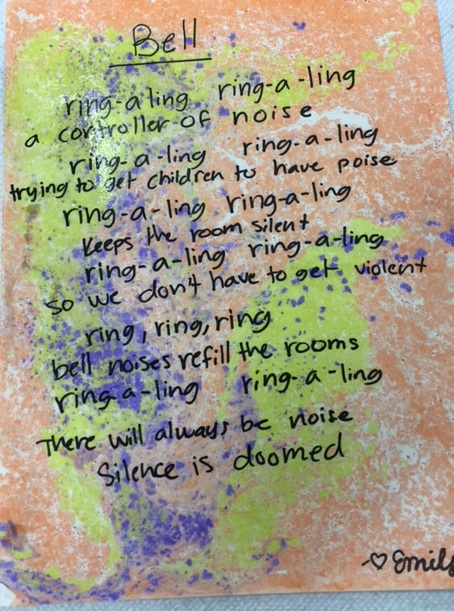 Bell
ring-a-ling ring-a-ling
a controller of noise
ring-a-ling ring-a-ling
trying to get children to have poise
ring-a-ling ring-a-ling
keeps the room silent
ring-a-ling ring-a-ling
so we don't have to get violent
ring, ring, ring
bell noises refill the rooms
ring-a-ling ring-a-ling
There will always be noise
Silence is doomed
-♡ Emily